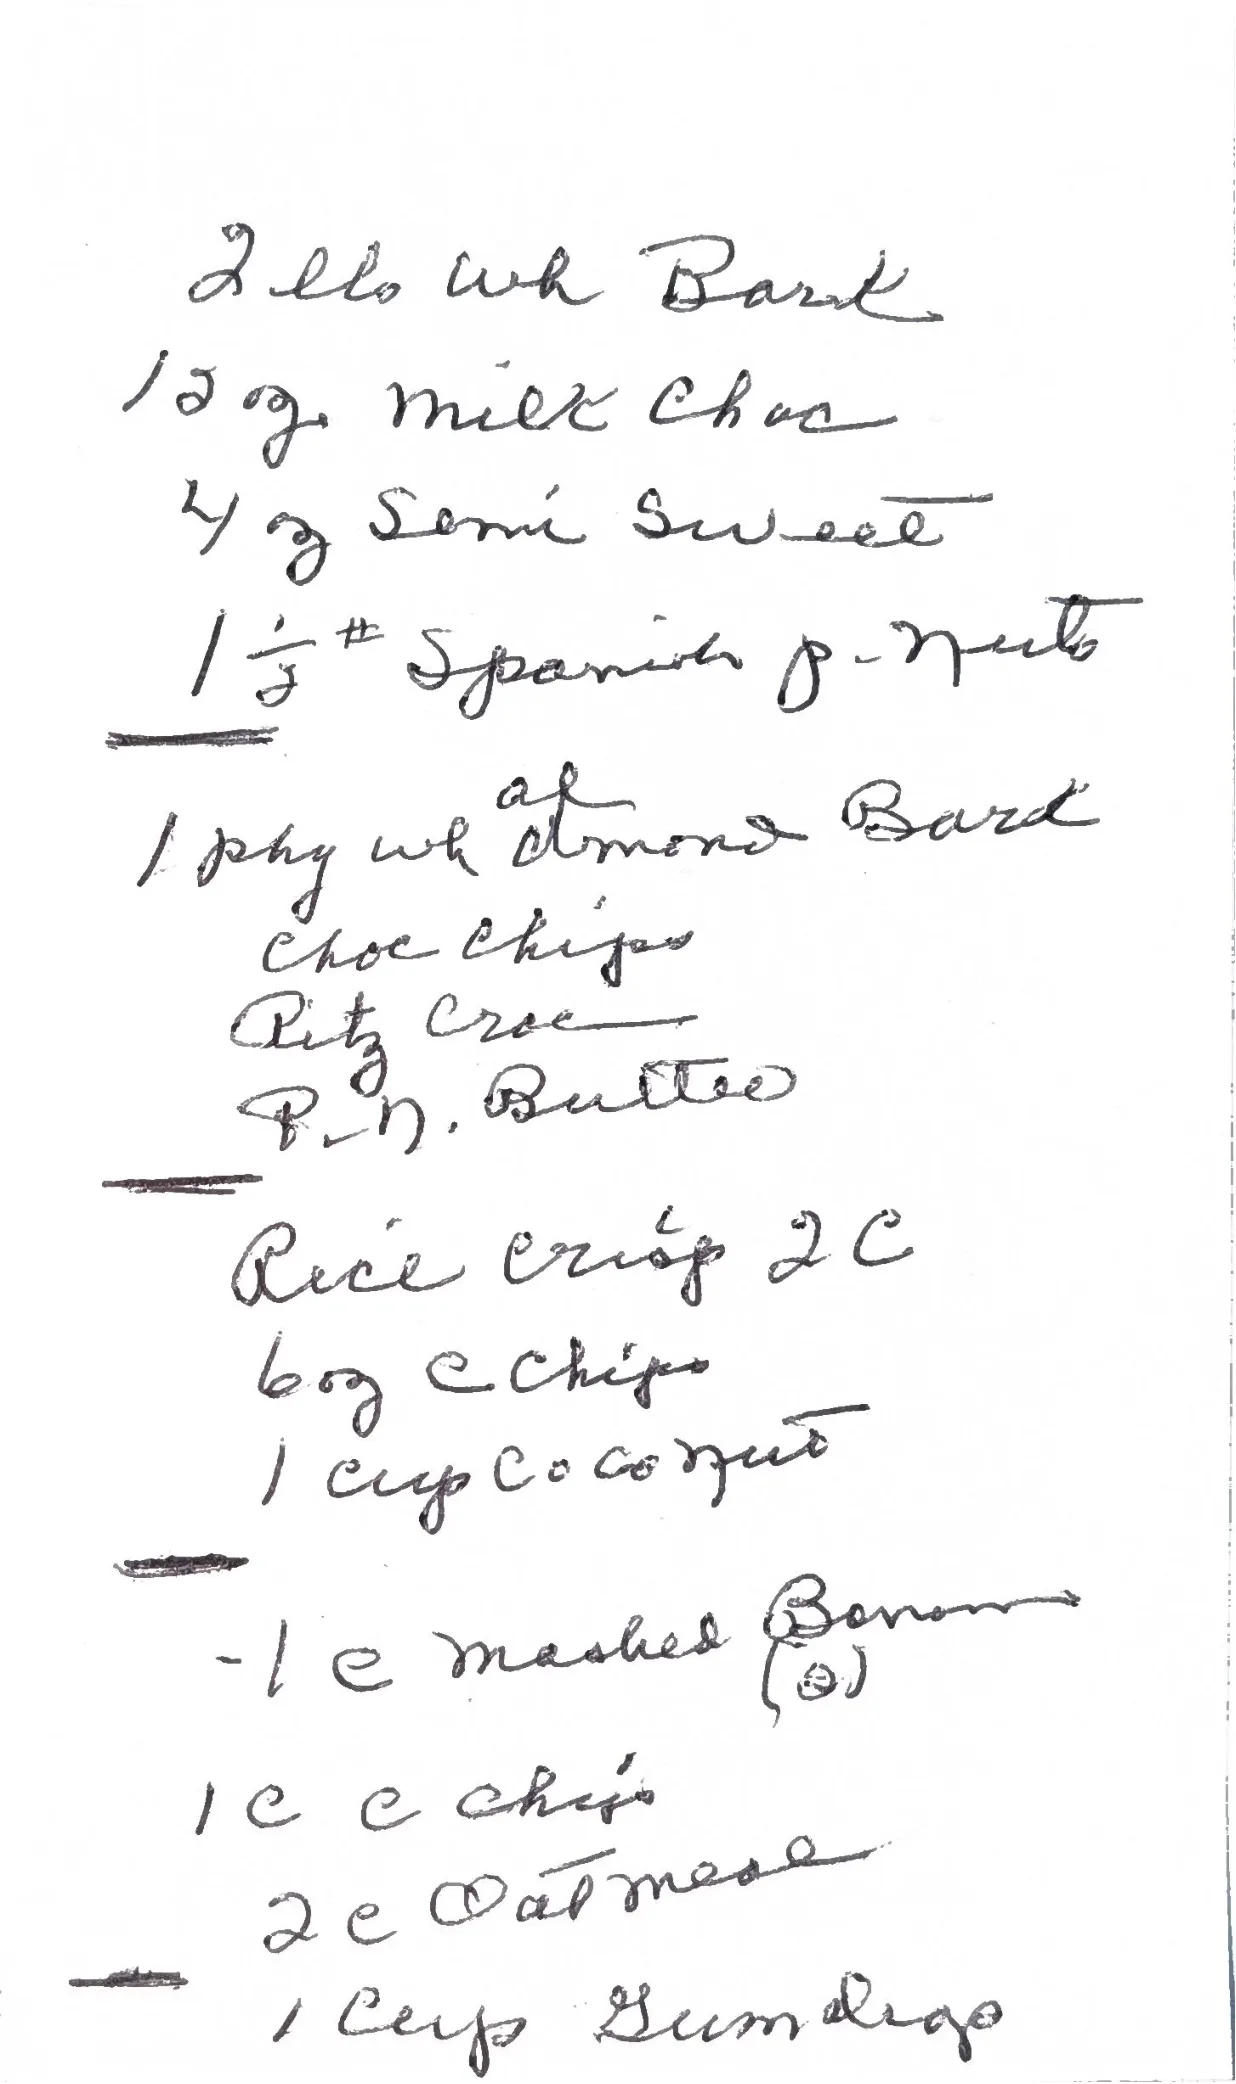 2 lbs wh Bark
12 oz. milk Choc
4 oz Semi Sweet
1 1/2 # Spanish p-nuts
1 pkg wh almond Bark
Choc Chips
Ritz Crac
P-n. Butter
Rice Crisp 2 C
6 oz C Chips
1 cup Coconut
-1 c mashed Banana
(2)
1 C C Chips
2 c Oatmeal
1 Cup Gumdrop